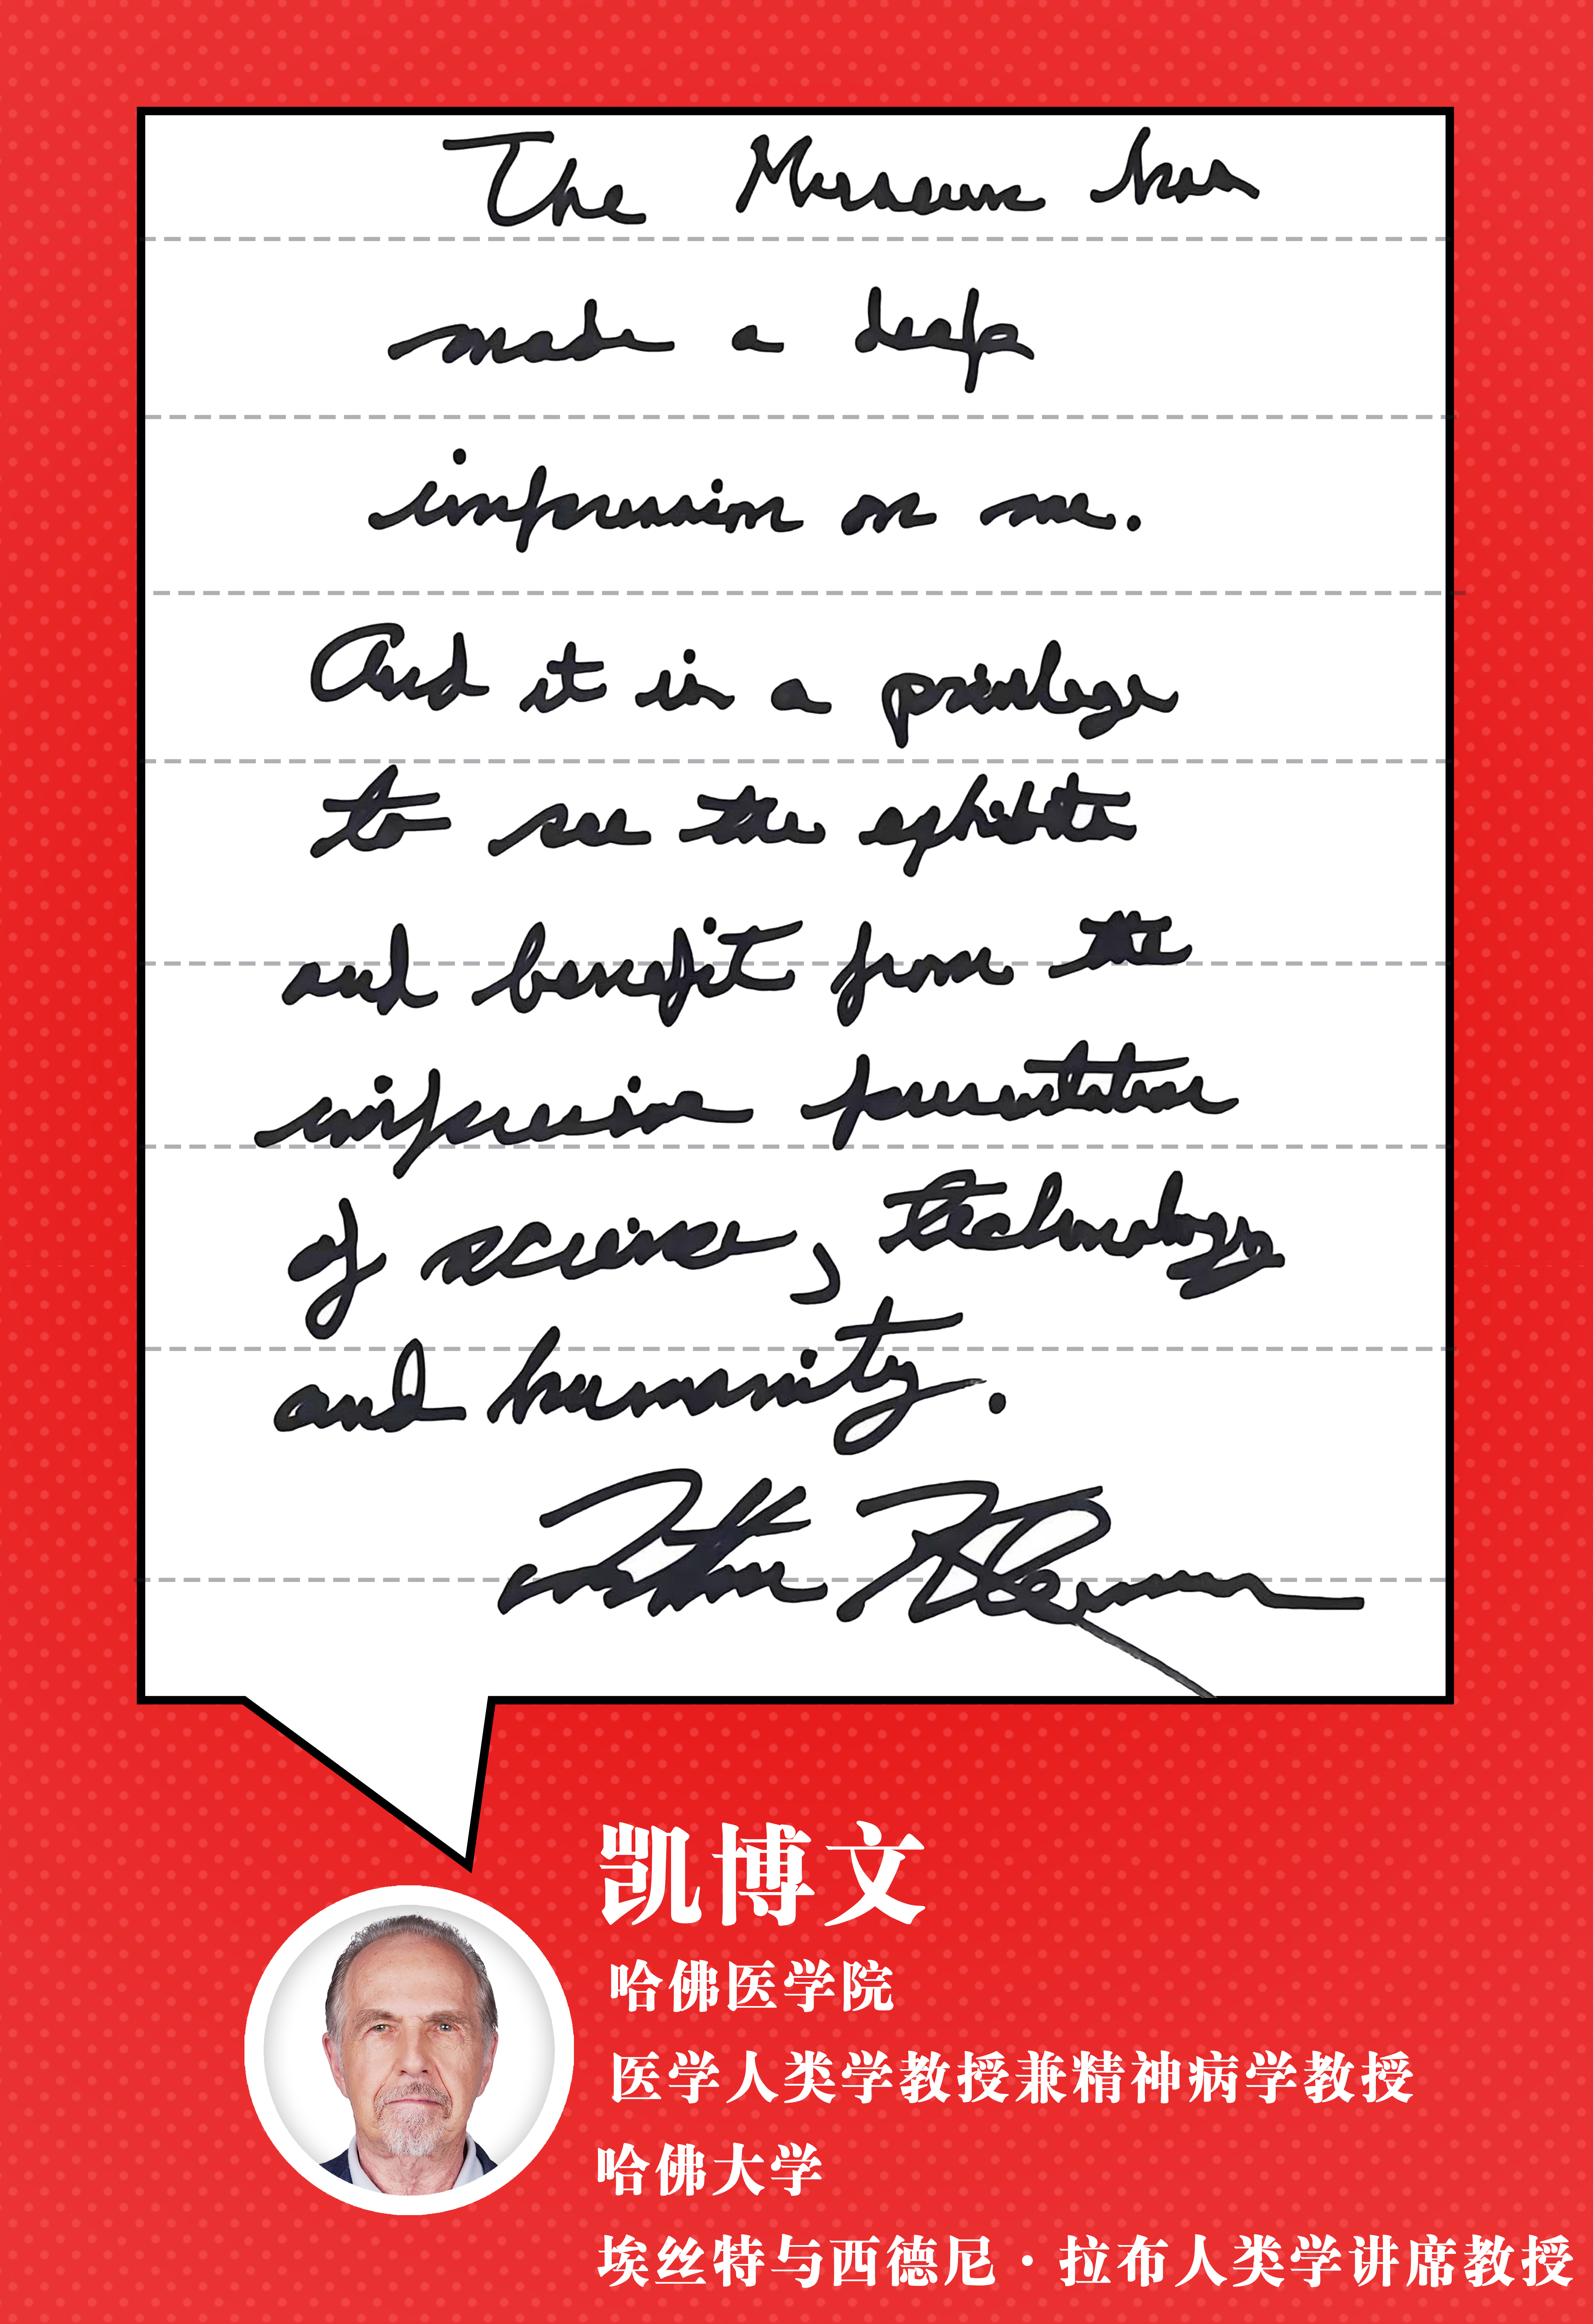 The Museum has
made a deep
impression on me.
And it is a privilege
to see the exhibits
and benefit from the
impressive presentation
of science, technology
and humanity.
凯博文
哈佛医学院
医学人类学教授兼精神病学教授
哈佛大学
埃丝特与西德尼·拉布人类学讲席教授